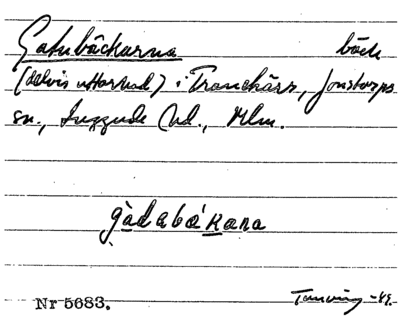 Gatubäckarna bäck
(delvis uttorkad) i Tranekärr, Jonstorps
sn., Luggude hd., Mlm.
gàdabákana
Nr 5683. -49.